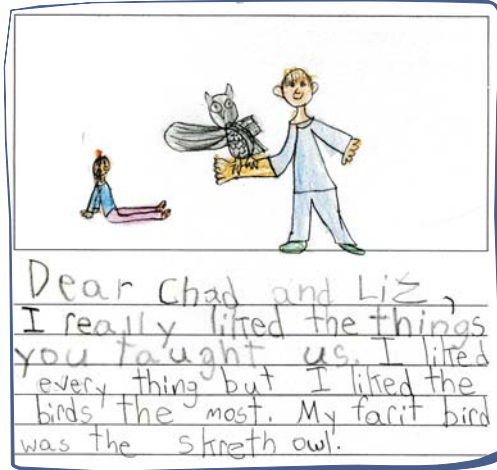 Dear Chad and Liz,
I really liked the things
you taught us. I liked
every thing but I liked the
birds the most. My farit bird
was the skreth owl.